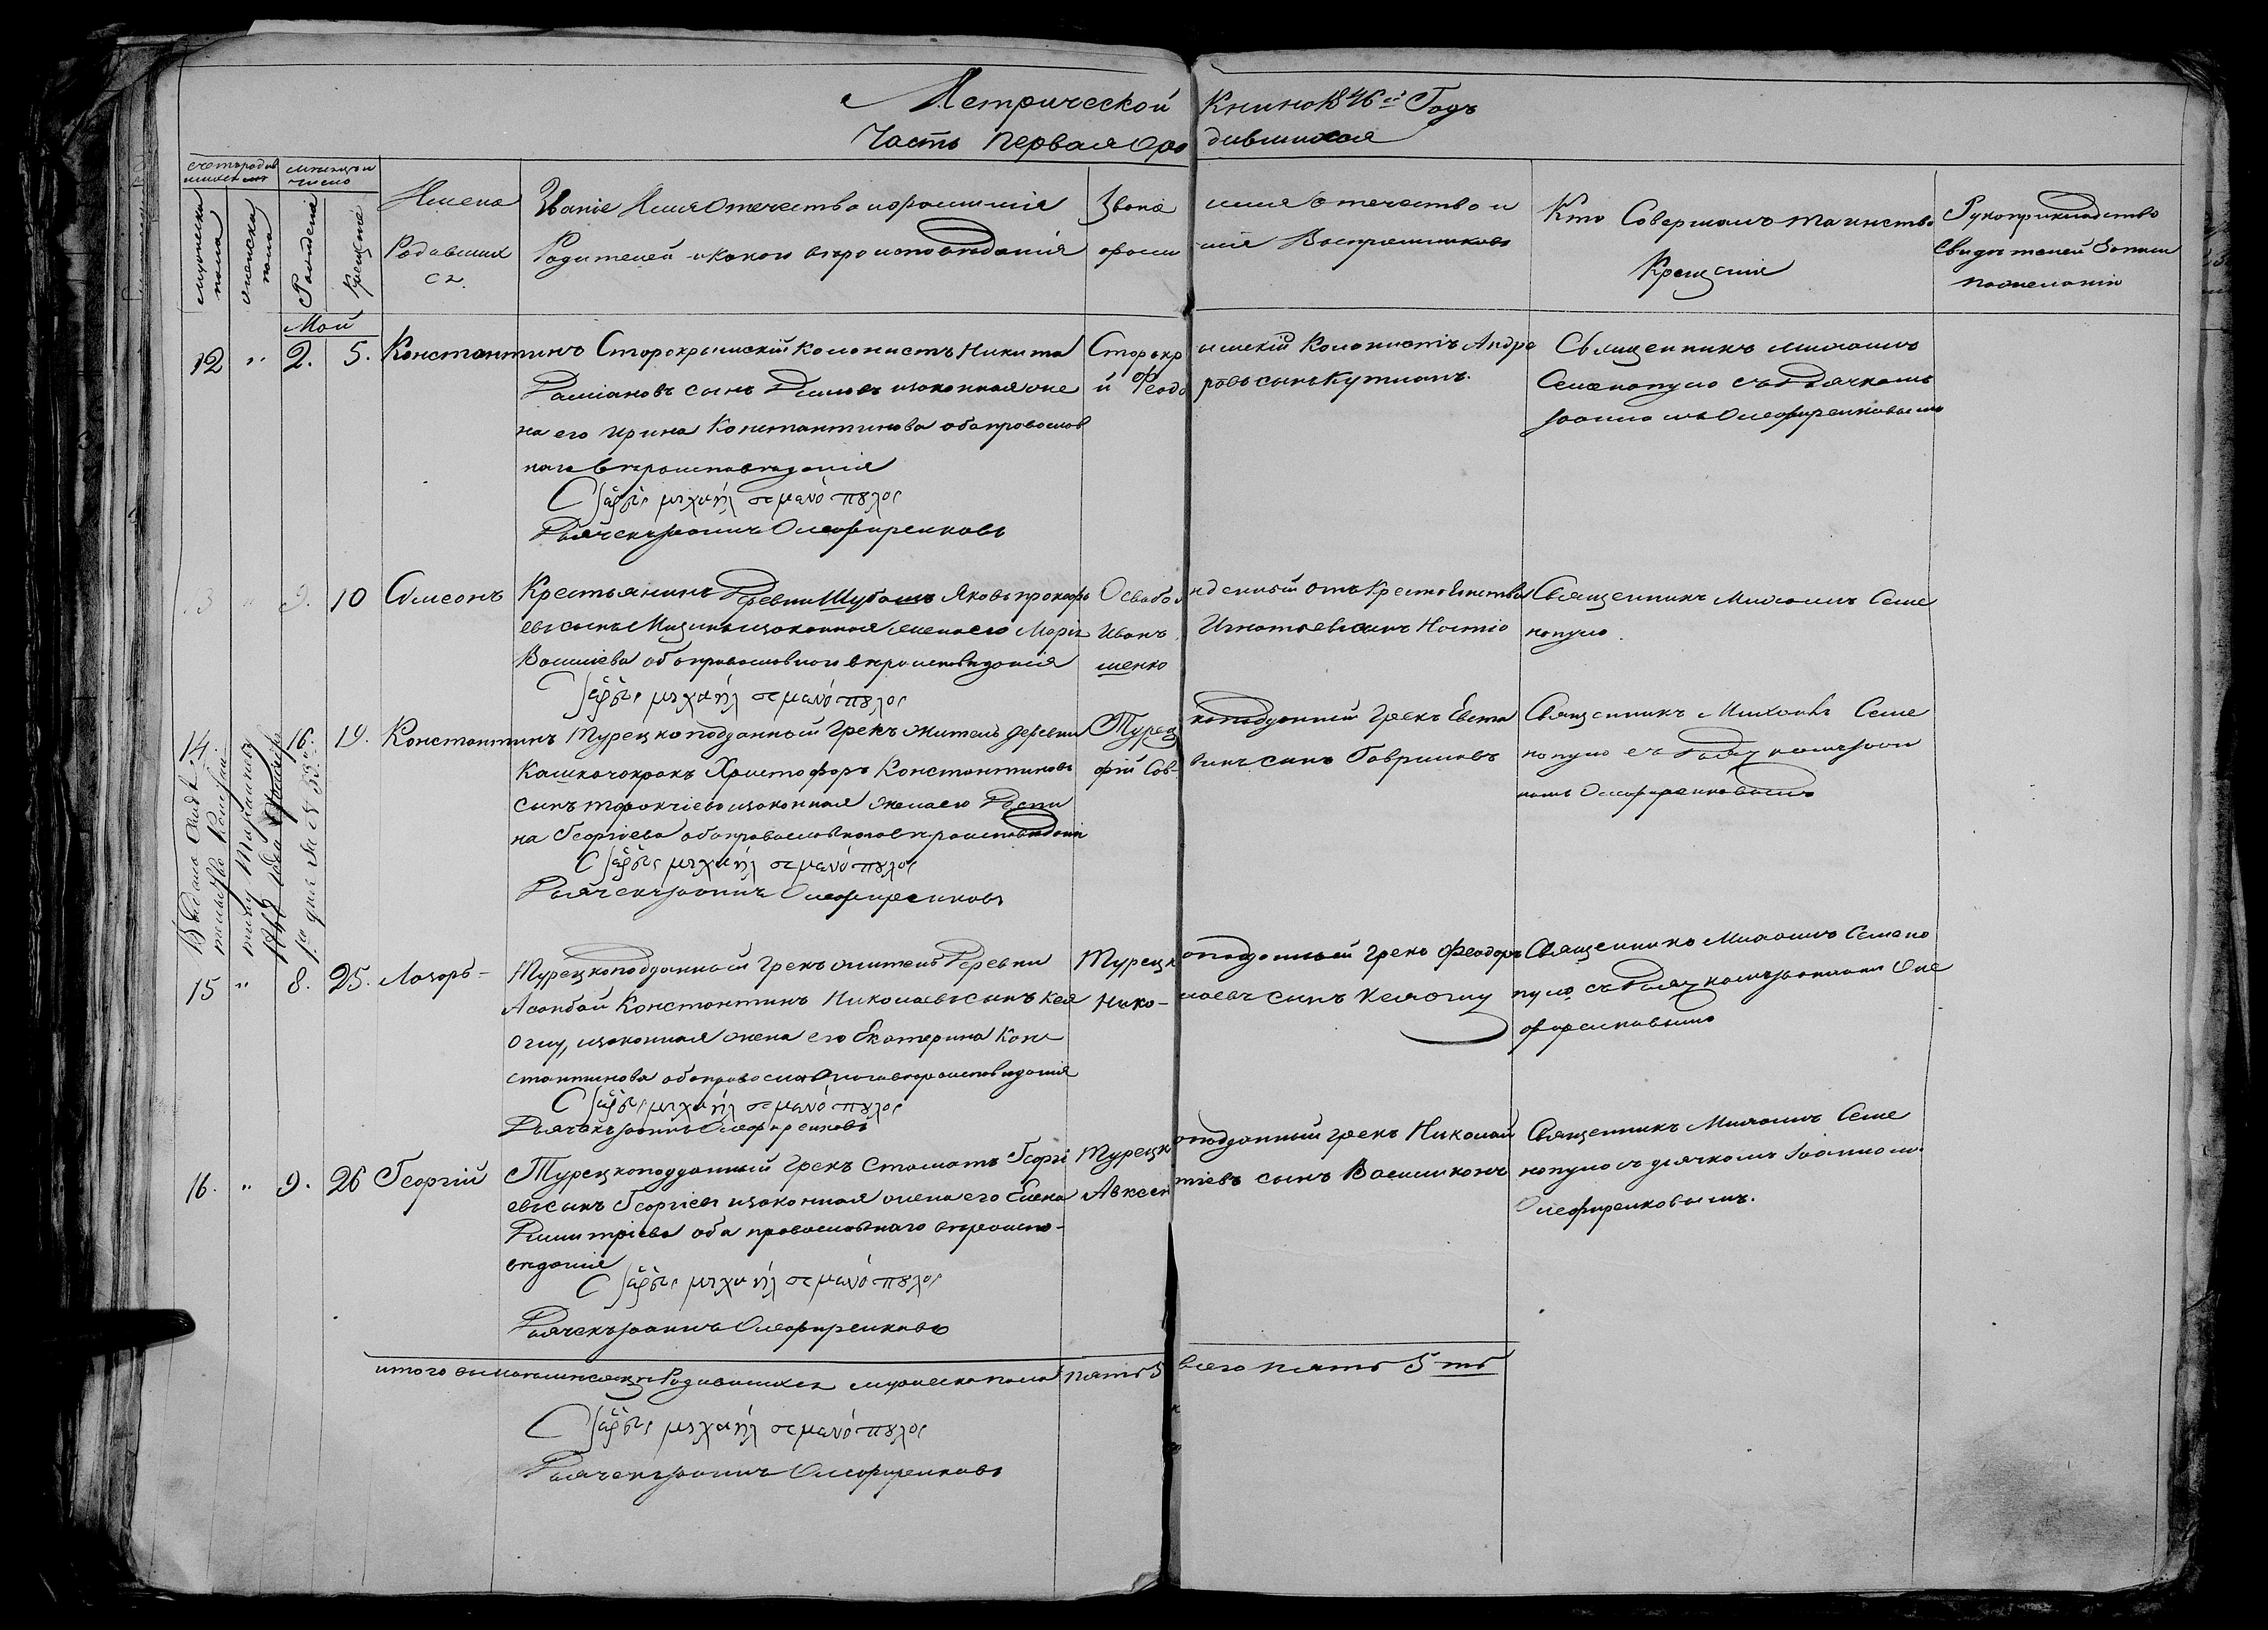 Метрической Книги 1846й Годъ
Часть Первая о родившихся
счетъ родив
шихся
месяцъ и
число
мужеска
пола
женска
пола
Рождения
Крещение
Имена
Родавших
ся.
Звание Имя Отечество и фамилия
Родителей и какого вероисповедания
Звание имя отечество и
фамилия Восприемниковъ
Кто Совершалъ таинство
Крещения
Рукоприкладство
Свидетелей Записи
по желанию
Май
12 " 2. 5. Константинъ
Старокрымский Колонистъ Никита
Дамиановъ сынъ и законная же
на его Ирина Константинова оба православ
наго вероисповедания
ἱερεὺς μιχαήλ σεμανόπȣλος
Дьячекъ Іоаннъ Олефиренковъ
Старокрымский Колонистъ Андре
й Феодоровъ сынъ
Священникъ Михаилъ
Семенопуло съ Дьячкомъ
Іоанномъ Олефиренковымъ
13 " 9. 10 Симеонъ
Крестьянинъ Деревни Шубашъ Яковъ Прокофь
евъ сынъ и законная жена его Мария
Василиева оба православнаго вероисповедания
ἱερεὺς μιχαήλ σεμανόπȣλος
Освобожденный отъ Крестьянства
Иванъ Игнатьевъ сынъ
Священникъ Михаилъ Семе
нопуло.
14. 16. 19. Константинъ
Турецкоподданный Грекъ житель деревни
Христофоръ Константиновъ
сынъ и законная жена его
на Георгиева оба православнаго вероисповедани
ἱερεὺς μιχαήλ σεμανόπȣλος
Дьячекъ Іоаннъ Олефиренковъ
Турецкоподданный Грекъ Евста
фий Саввинъ сынъ Гавриловъ
Священникъ Михаилъ Семе
нопуло съ Дьячкомъ Іоан
номъ Олефиренковымъ
15 " 8. 25. Лазарь
Турецкоподданный Грекъ житель Деревни
Асанбай Константинъ Николаевъ сынъ Кея
оглу, и законная жена его Екатерина Кон
стантинова оба православнаго вероисповедания
ἱερεὺς μιχαήλ σεμανόπȣλος
Дьячекъ Іоаннъ Олефиренковъ
Турецкоподданный Грекъ Феодоръ
Николаевъ сынъ Кеяоглу
Священникъ Михаилъ Семено
пуло съ Дьячкомъ Іоанномъ Оле
фиренковымъ
16. " 9. 26 Георгий
Турецкоподданный Грекъ Стаматъ Георги
евъ сынъ Георгиевъ и законная жена его Елена
Димитриева оба православнаго вероиспо-
ведания
ἱερεὺς μιχαήλ σεμανόπȣλος
Дьячекъ Іоаннъ Олефиренковъ
Турецкоподданный грекъ Николай
Авксентиевъ сынъ
Священникъ Михаилъ Семе
нопуло съ дьячкомъ Іоанномъ
Олефиренковымъ.
итого въ мае месяце Родившихся мужеска пола пять 5 всего пять 5ть
ἱερεὺς μιχαήλ σεμανόπȣλος
Дьячекъ Іоаннъ Олефиренковъ